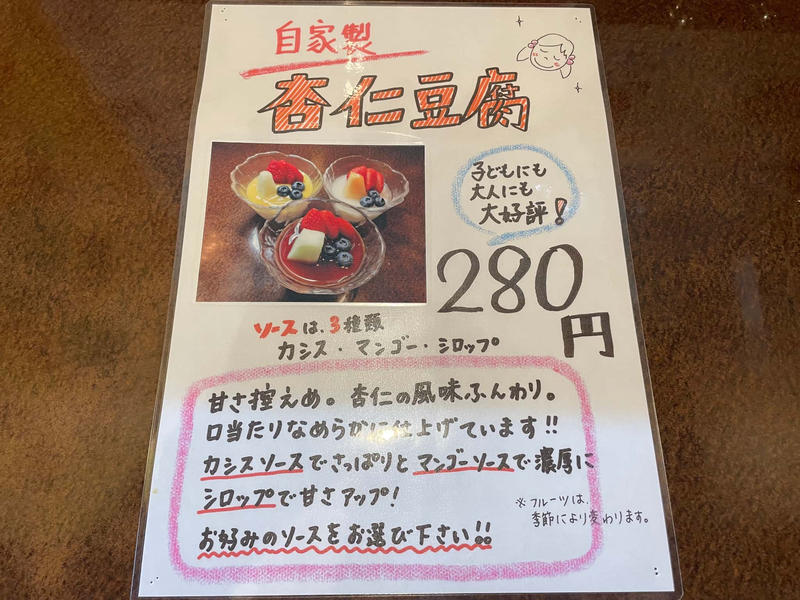 自家製
杏仁豆腐
子どもにも
大人にも
大好評!
280円
ソースは、3種類
カシス・マンゴー・シロップ
甘さ控えめ。杏仁の風味ふんわり。
口当たりなめらかに仕上げています!!
カシスソースでさっぱりとマンゴーソースで濃厚に
シロップで甘さアップ!
お好みのソースをお選び下さい!!
※フルーツは、
季節により変わります。